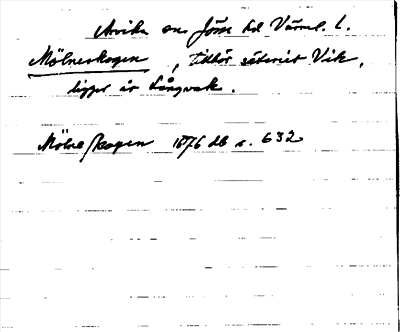 Arvika sn Jösse hd Värml. l.
Mölneskogen, tillhör säteriet Vik,
ligger är Långvak.
Mölneskogen 1876 db s. 632